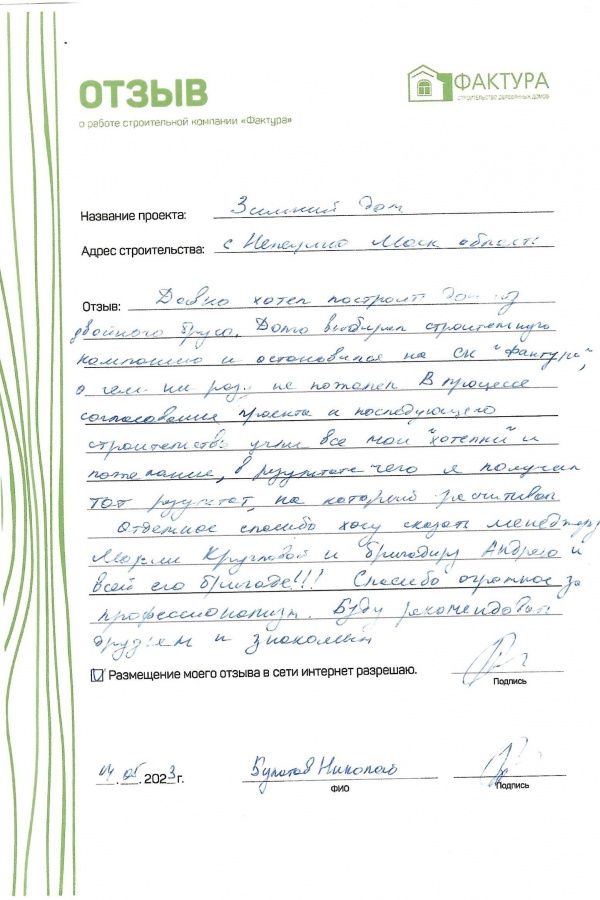 ОТЗЫВ
ФАКТУРА
СТРОИТЕЛЬСТВО ДЕРЕВЯННЫХ ДОМОВ
о работе строительной компании «Фактура»
Название проекта: Зимний дом
Адрес строительства: с Непецино Моск области
Отзыв: Давно хотел построить дом из
двойного бруса. Долго выбирал строительную
кампанию и остановился на СК "Фактура",
о чем ни разу не пожалел В процессе
согласования проекта и последующего
строительства учли все мои "хотелки" и
пожелание, в результате чего я получил
тот результат, на который расчитывал
Отдельное спасибо хочу сказать менеджеру
Марии Кругловой и бригадиру Андрею и
всей его бригаде!!! Спасибо огромное за
профессионализм. Буду рекомендовать
друзьям и знакомым
Размещение моего отзыва в сети интернет разрешаю.
Подпись
04.05.2023г.
Булатов Николай
ФИО
Подпись